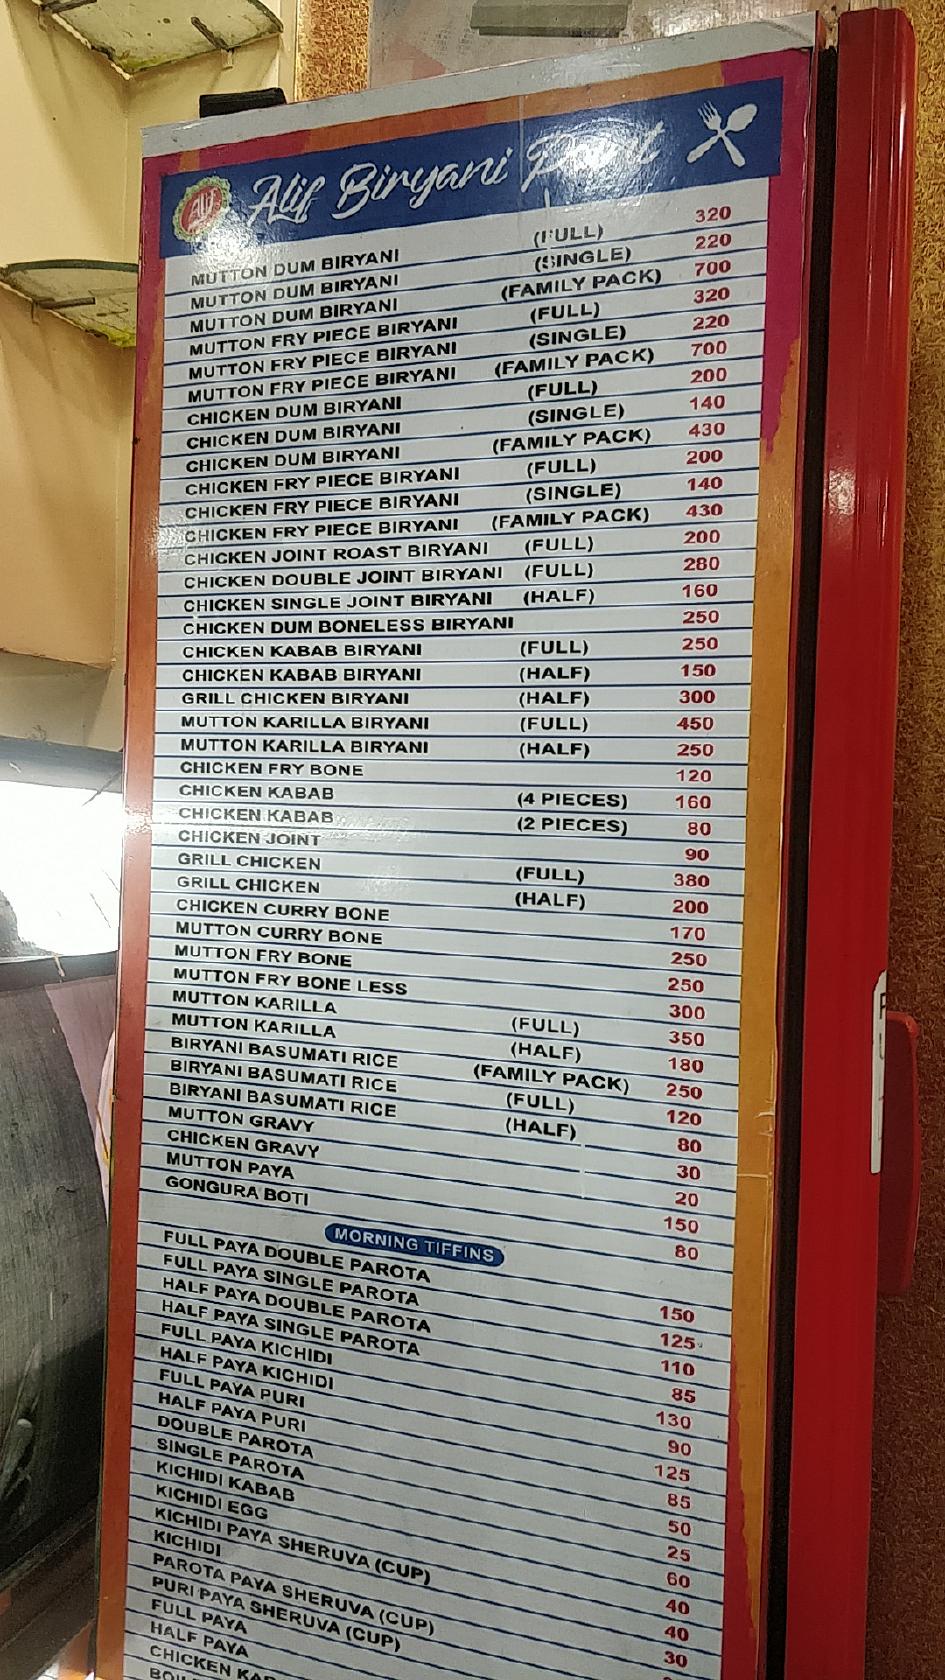 Alif Alif Biryani Point
MUTTON DUM BIRYANI (FULL) 320
MUTTON DUM BIRYANI (SINGLE) 220
MUTTON DUM BIRYANI (FAMILY PACK) 700
MUTTON FRY PIECE BIRYANI (FULL) 320
MUTTON FRY PIECE BIRYANI (SINGLE) 220
MUTTON FRY PIECE BIRYANI (FAMILY PACK) 700
CHICKEN DUM BIRYANI (FULL) 200
CHICKEN DUM BIRYANI (SINGLE) 140
CHICKEN DUM BIRYANI (FAMILY PACK) 430
CHICKEN FRY PIECE BIRYANI (FULL) 200
CHICKEN FRY PIECE BIRYANI (SINGLE) 140
CHICKEN FRY PIECE BIRYANI (FAMILY PACK) 430
CHICKEN JOINT ROAST BIRYANI (FULL) 200
CHICKEN DOUBLE JOINT BIRYANI (FULL) 280
CHICKEN SINGLE JOINT BIRYANI (HALF) 160
CHICKEN DUM BONELESS BIRYANI 250
CHICKEN KABAB BIRYANI (FULL) 250
CHICKEN KABAB BIRYANI (HALF) 150
GRILL CHICKEN BIRYANI (HALF) 300
MUTTON KARILLA BIRYANI (FULL) 450
MUTTON KARILLA BIRYANI (HALF) 250
CHICKEN FRY BONE 120
CHICKEN KABAB (4 PIECES) 160
CHICKEN KABAB (2 PIECES) 80
CHICKEN JOINT 90
GRILL CHICKEN (FULL) 380
GRILL CHICKEN (HALF) 200
CHICKEN CURRY BONE 170
MUTTON CURRY BONE 250
MUTTON FRY BONE 250
MUTTON FRY BONE LESS 300
MUTTON KARILLA (FULL) 350
MUTTON KARILLA (HALF) 180
BIRYANI BASUMATI RICE (FAMILY PACK) 250
BIRYANI BASUMATI RICE (FULL) 120
BIRYANI BASUMATI RICE (HALF) 80
MUTTON GRAVY 30
CHICKEN GRAVY 20
MUTTON PAYA 150
GONGURA BOTI 80
MORNING TIFFINS
FULL PAYA DOUBLE PAROTA 150
FULL PAYA SINGLE PAROTA 125
HALF PAYA DOUBLE PAROTA 110
HALF PAYA SINGLE PAROTA 85
FULL PAYA KICHIDI 130
HALF PAYA KICHIDI 90
FULL PAYA PURI 125
HALF PAYA PURI 85
DOUBLE PAROTA 50
SINGLE PAROTA 25
KICHIDI KABAB 60
KICHIDI EGG 40
KICHIDI PAYA SHERUVA (CUP) 40
KICHIDI 30
PAROTA PAYA SHERUVA (CUP)
PURI PAYA SHERUVA (CUP)
FULL PAYA
HALF PAYA
CHICKEN